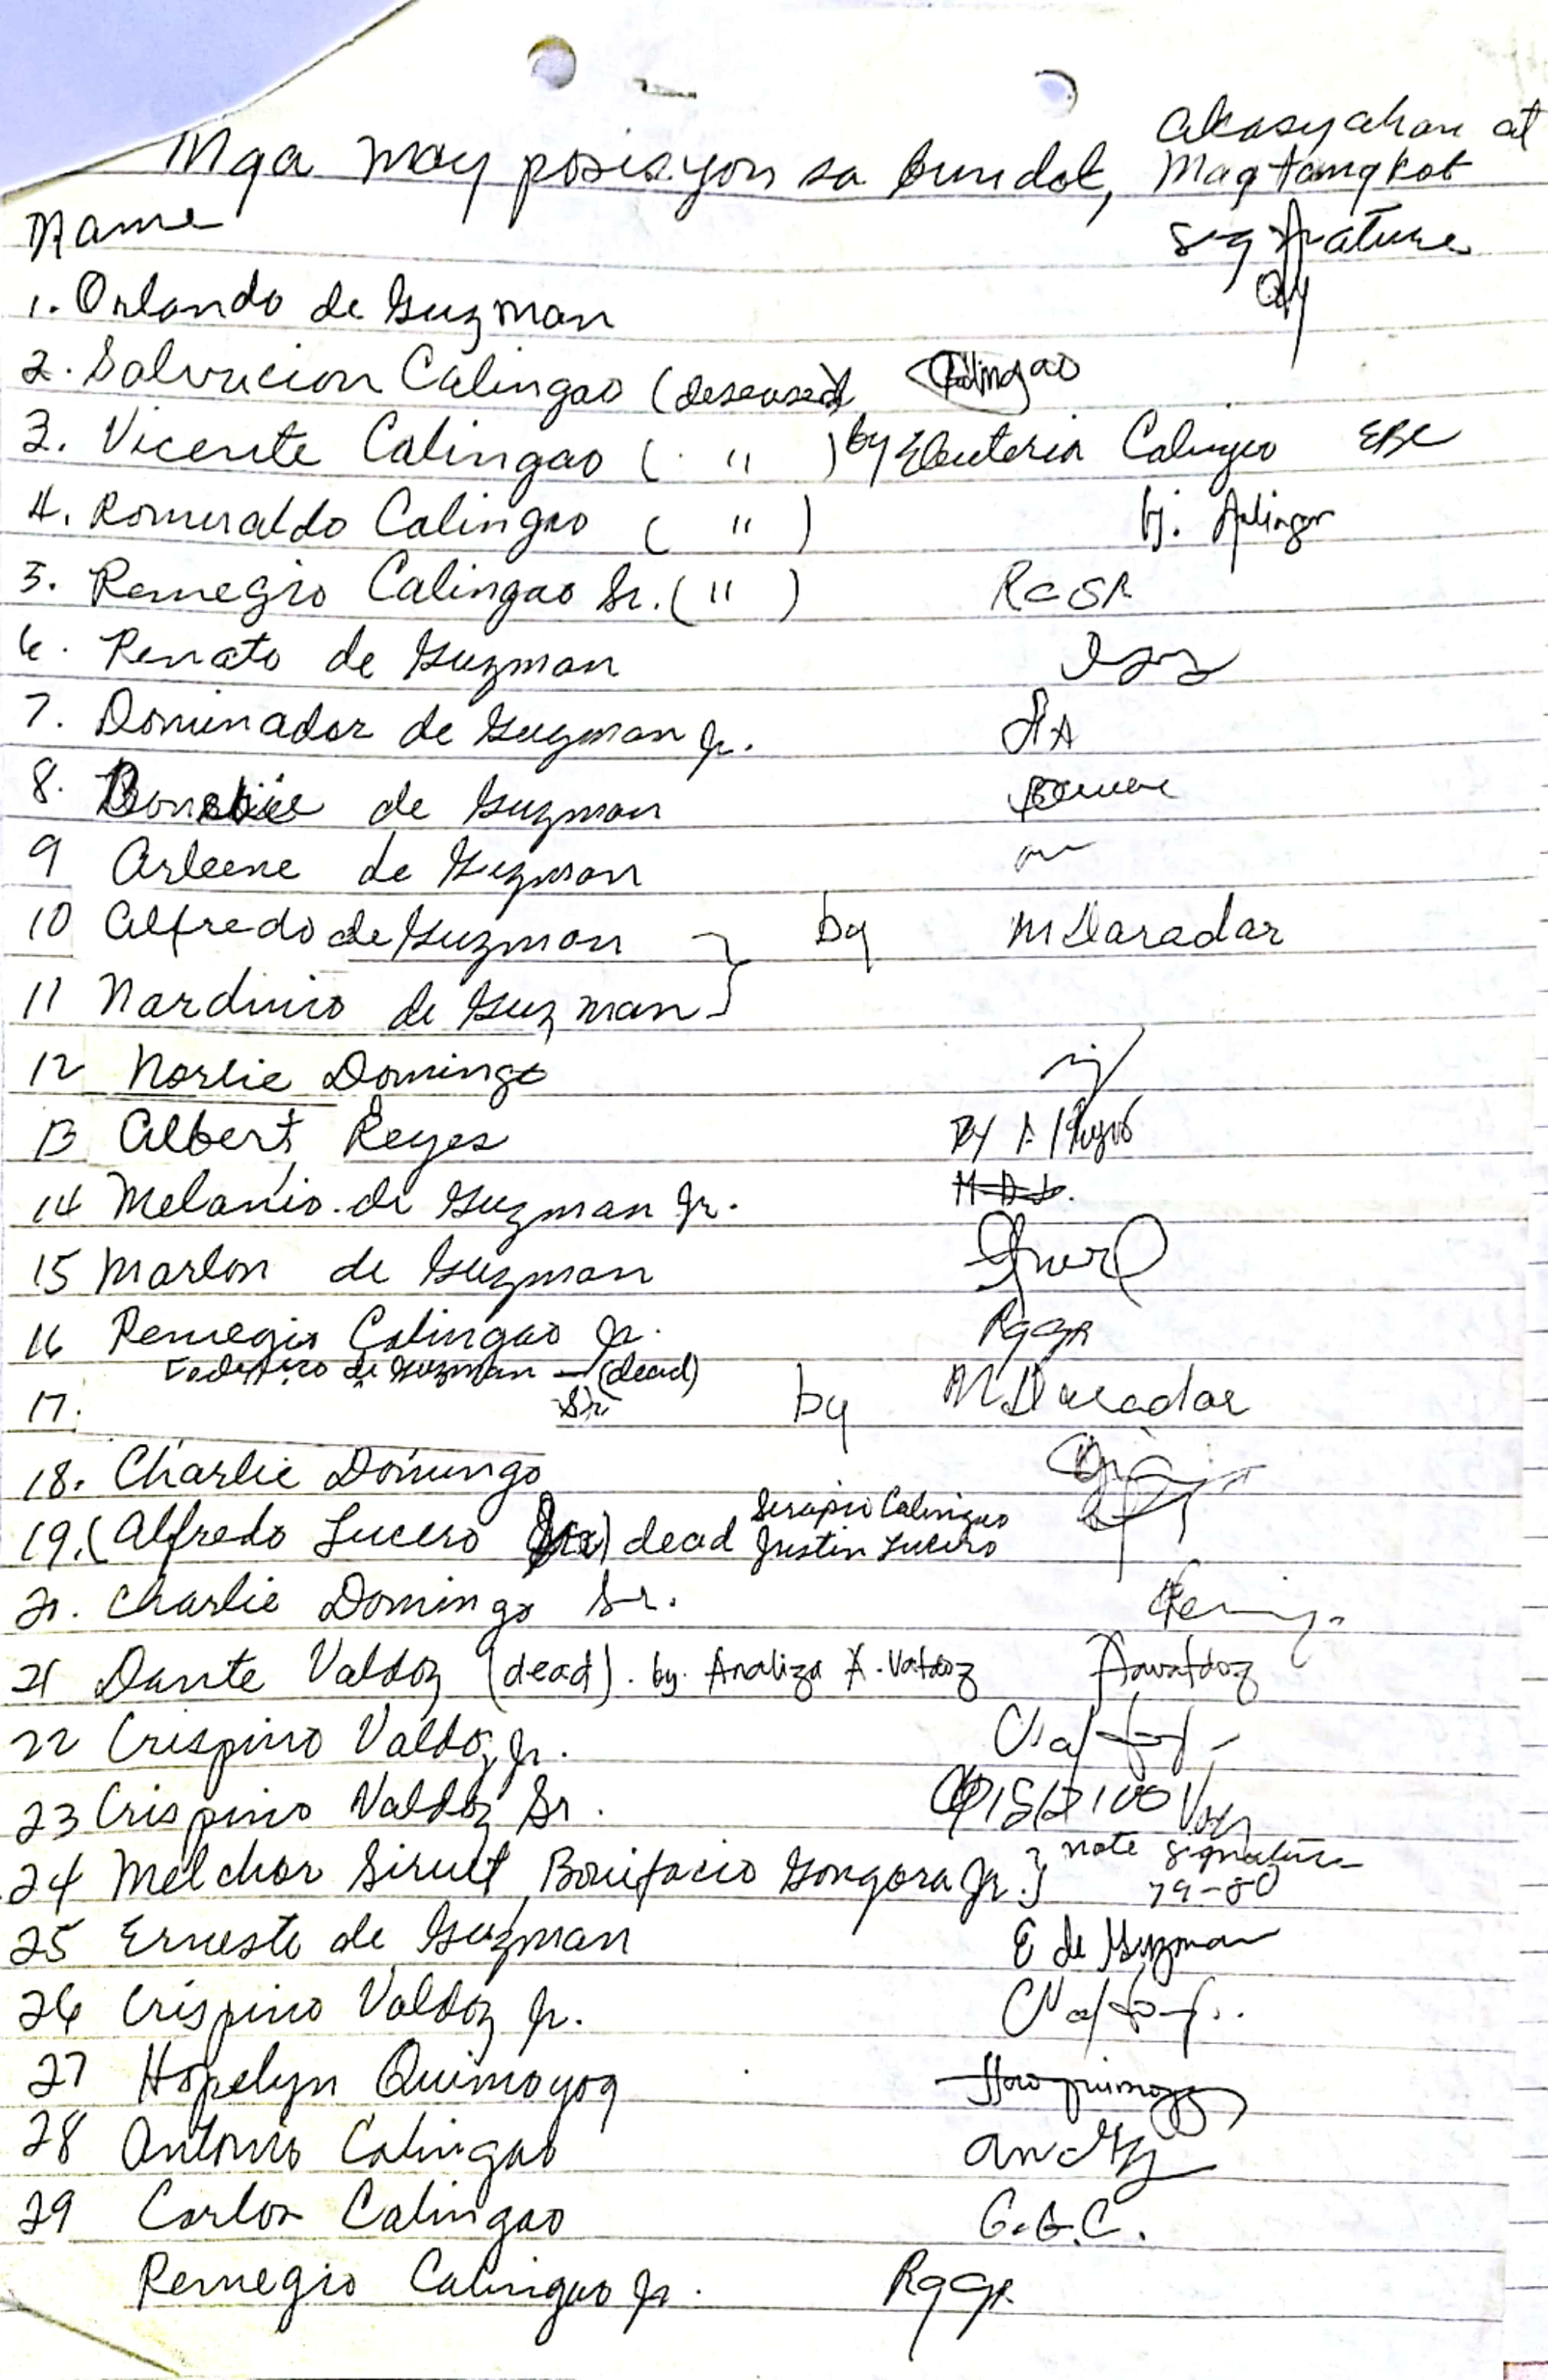 akasyahan at
Mga may posisyon sa bundok, Magtangkob
Name signature
1. Orlando de Guzman
2. Salvacion Calingao (deseased) Calingao
3. Vicente Calingao ( " ) by Eleuteria Calingao EBC
4. Romeraldo Calingao ( " ) by.
5. Remegio Calingao Sr. ( " ) RCSR
6. Renato de Guzman
7. Dominador de Guzman Jr.
8. de Guzman
9 Arleene de Guzman
10 Alfredo de Guzman } by MDaradar
11 Nardinio de Guzman
12 Norlie Domingo
13 Albert Reyes By A.
14 Melanio de Guzman Jr.
15 Marlon de Guzman
16 Remegio Calingao Jr. RGCJR
Federico de Guzman — (dead)
17. Sr by MDaradar
18. Charlie Domingo
19. (Alfredo Lucero ) dead Serapio Calingao
Justin Lucero
20. Charlie Domingo Sr.
21 Dante Valdoz (dead). by. Analiza A. Valdoz
22 Crispino Valdoz Jr.
23 Crispino Valdoz Sr.
24 Melchor Siruet, Bonifacio Gongora Jr. } note signature
79-80
25 Ernesto de Guzman E de Guzman
26 Crispino Valdoz Jr.
27 Hopelyn Quimoyog
28 Antonio Calingao
29 Carlos Calingao C.G.C.
Remegio Calingao Jr. RGCJR